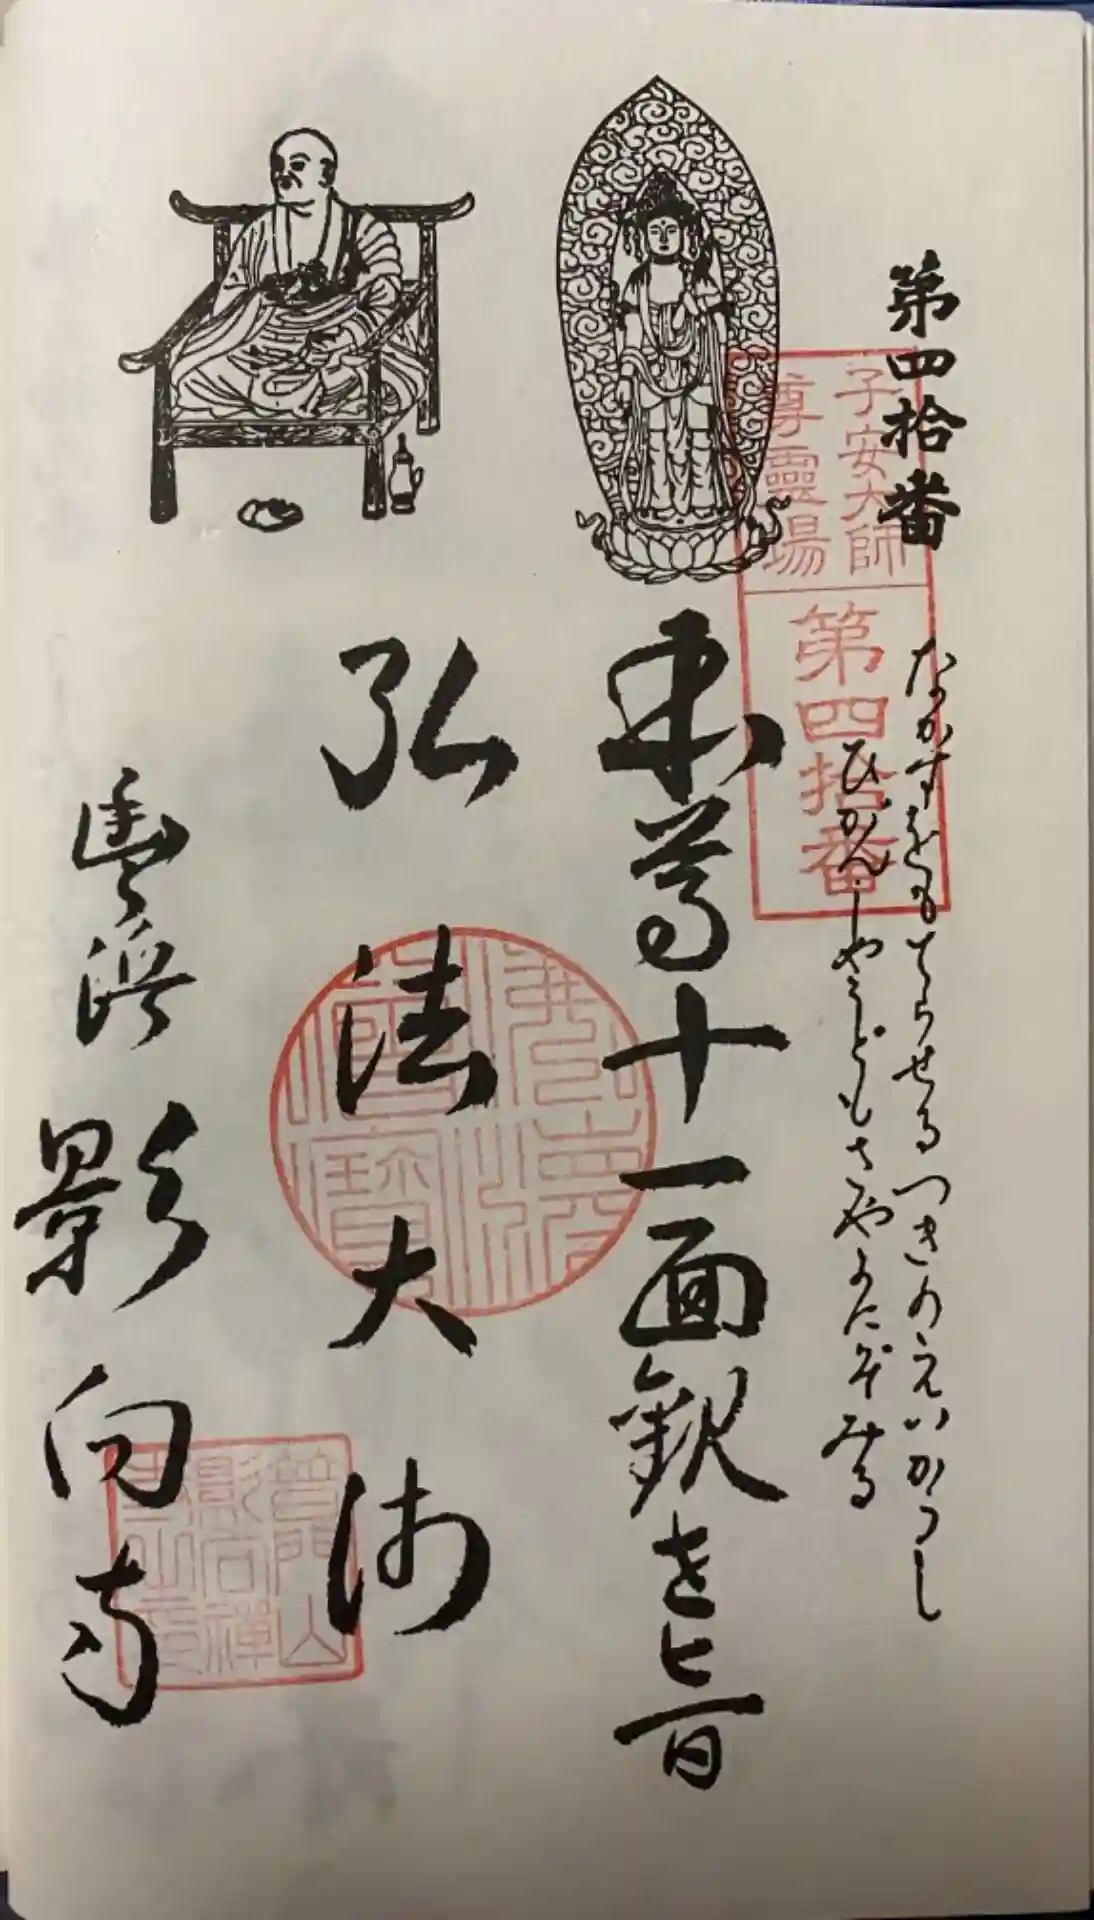 第四拾番
なかすをもてらせるつきのえいかうし
ひがんしやうどもさやかにぞみる
子安大師
尊靈場
第四拾番
本尊十一面観世音
弘法大師
豊浜
影向寺
普門山
影向禪